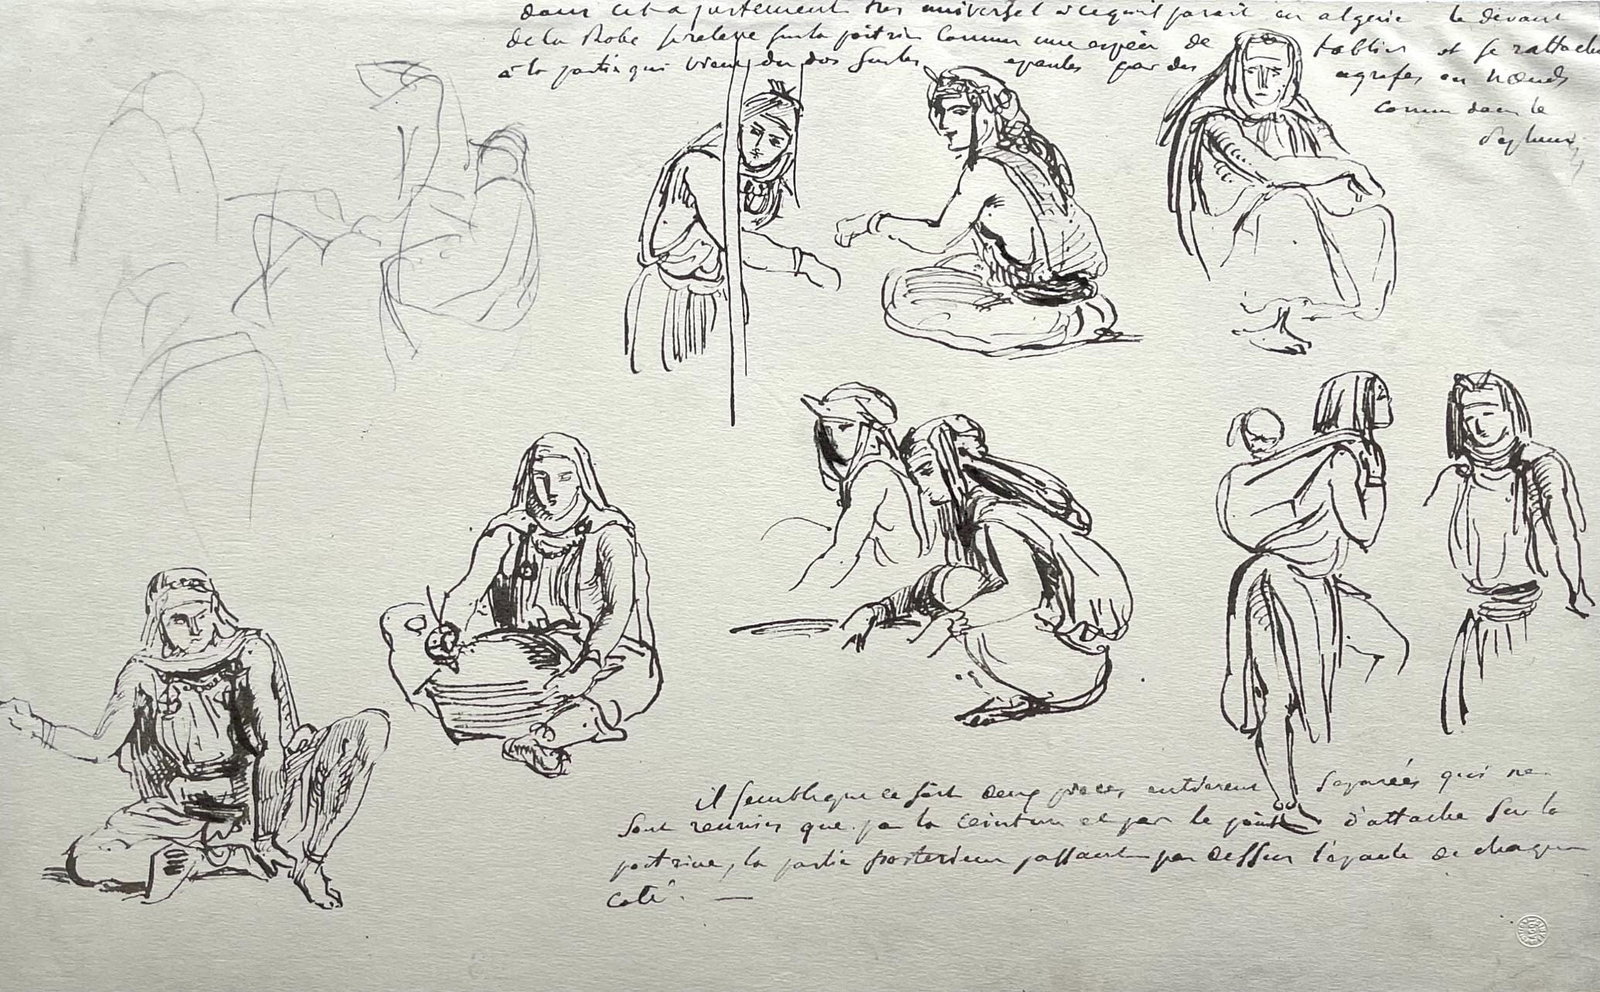 dans cet ajustement très universel à ce qu'il parait en algerie le devant
de la Robe se releve sur la poitrine comme une espèce de tablier et se rattache
à la partie qui vient du dos sur les epaules par des agrafes ou nœuds
comme dans le
il semble que ce soit deux pieces entierement separées qui ne
sont reunies que par la ceinture et par le point d'attache sur la
poitrine, la partie posterieure passant par dessus l'epaule de chaque
coté. —